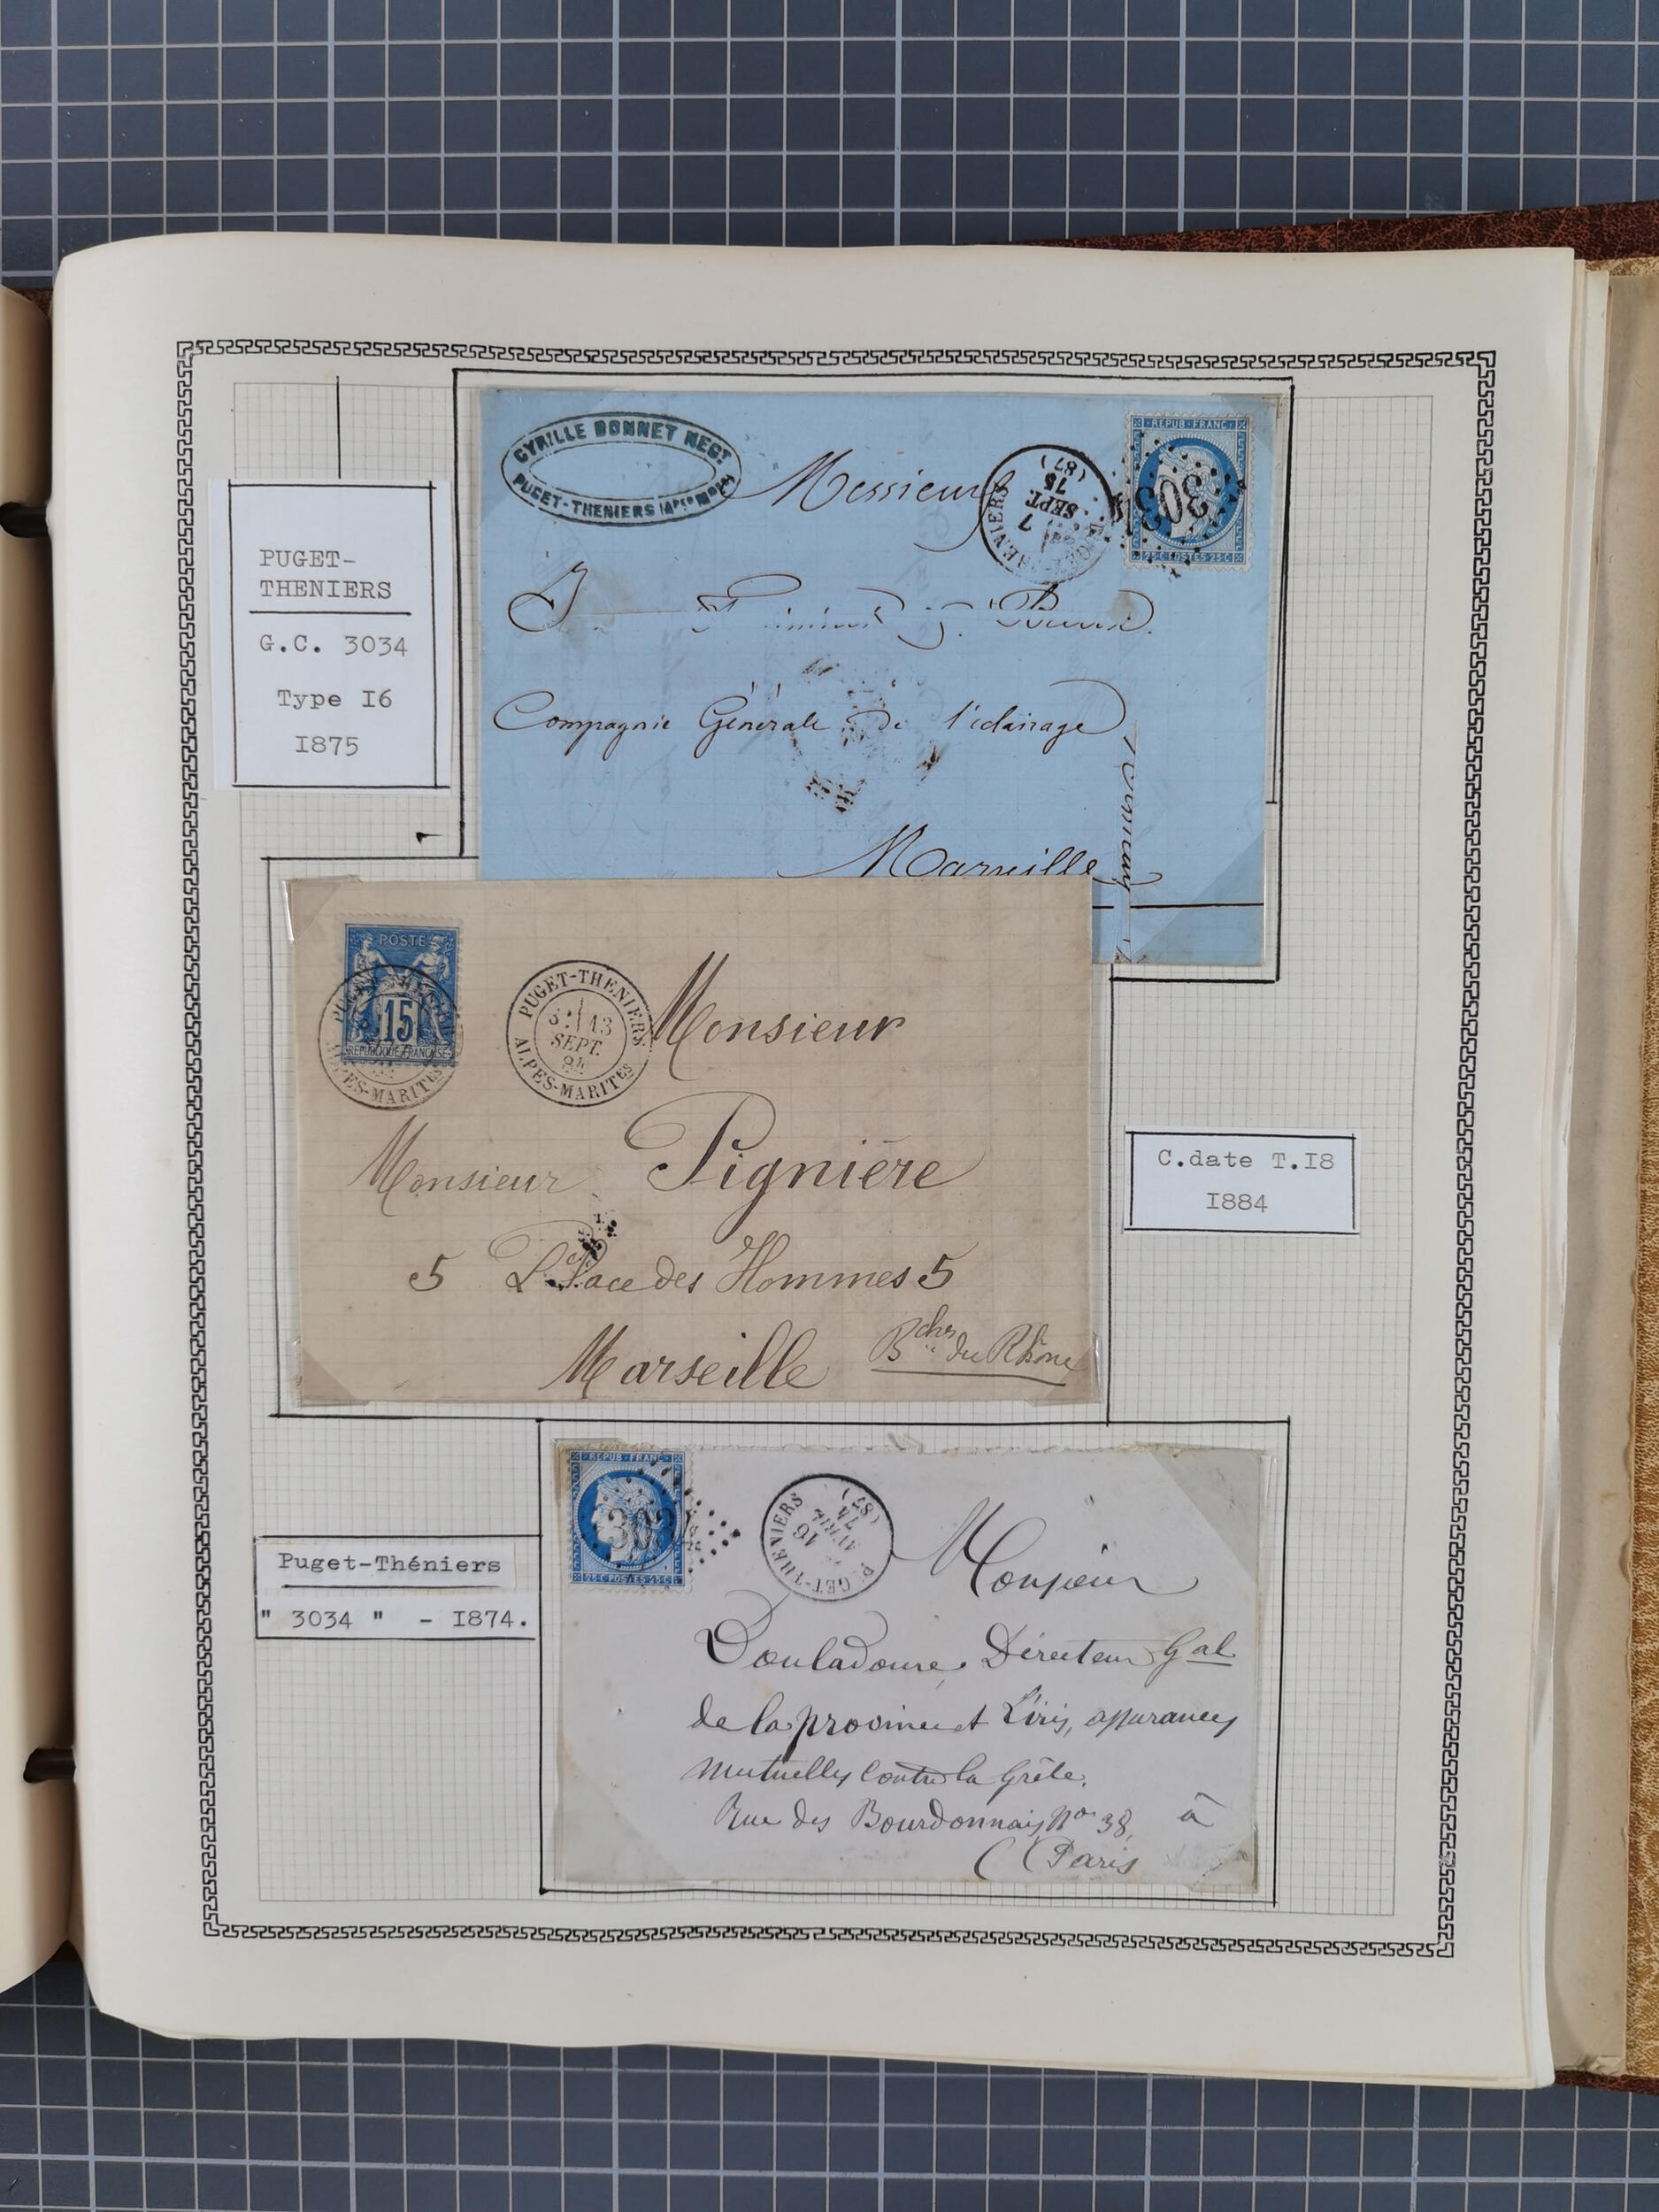 PUGET-
THENIERS
G.C. 3034
Type I6
I875
CYRILLE BONNET NEGT
PUGET-THENIERS
Messieurs
7
SEPT.
75
(87)
REPUB·FRANC
3034
25·C·POSTES·25·C
Compagnie Générale de l'éclairage
Marseille
POSTE
15
REPUBLIQUE FRANÇAISE
ALPES-MARITES
PUGET-THENIERS
3E 13
SEPT.
84
ALPES-MARITES
Monsieur
Monsieur Pignière
5 Place des Hommes 5
Marseille Bches du Rhône
C.date T.I8
I884
Puget-Théniers
" 3034 " - I874.
REPUB·FRANC
303
25·C·POSTES·25·C
PUGET-THENIERS
16
AVRIL
74
(87)
Monsieur
Douladoure, Directeur Gal
de la province et L'iris, assurances
mutuelles contre la Grêle.
Rue des Bourdonnais No 38, à
Paris